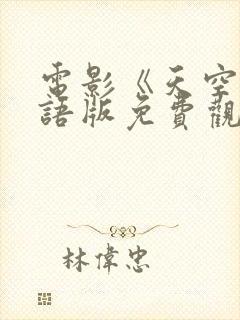 電影《天空
語版免費觀
林偉忠